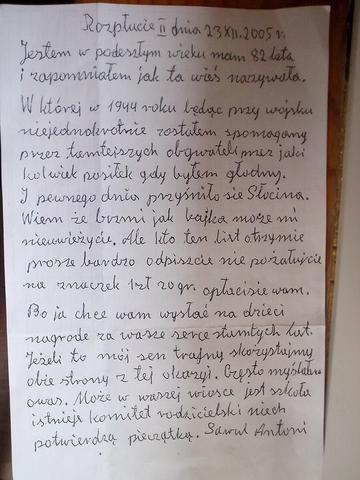 Rozpłucie II dnia 23 XII. 2005 r.
Jestem w podeszłym wieku mam 82 lata
i zapomniałem jak ta wieś nazywała.
W której w 1944 roku będąc przy wojsku
niejednokrotnie zostałem spomagany
przez tamtejszych obywateli przez jaki
kolwiek posiłek gdy byłem głodny.
I pewnego dnia przyśniło sie Słocina.
Wiem że brzmi jak bajka może mi
nieuwieżycie. Ale kto ten list otrzymie
prosze bardzo odpiszcie nie pożałujcie
na znaczek 1 zł 20 gr. opłacisie wam.
Bo ja chce wam wysłać na dzieci
nagrode za wasze serce stamtych lat.
Jeżeli to mój sen trafny skorzystajmy
obie strony z tej okazyi. Często myślałem
owas. Może w waszej wiosce jest szkoła
istnieje komitet rodzicielski niech
potwierdzą pieczątką. Antoni